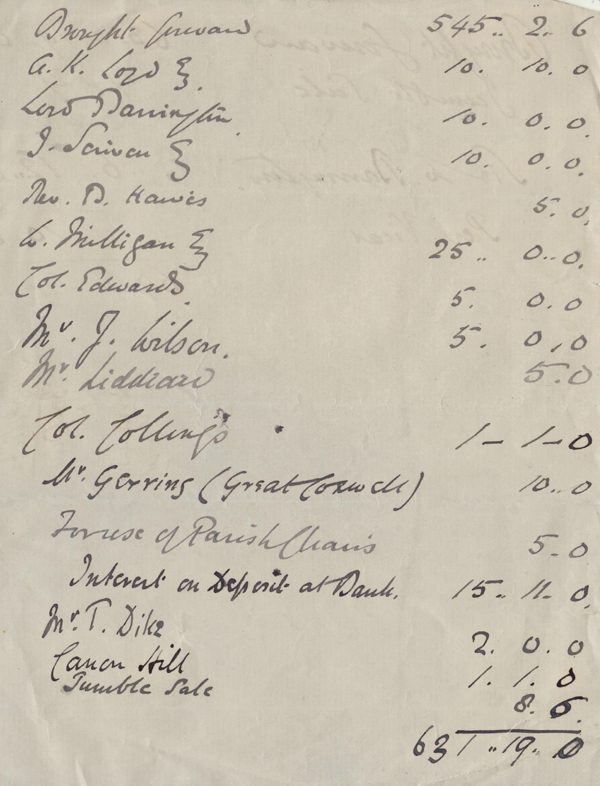 Brought forward 545.. 2.. 6
A. K. Loyd 10. 10. 0
Lord Barrington 10. 0. 0.
J. Scriven 10. 0. 0.
Rev. D. Hawes 5. 0.
W. Milligan 25.. 0..0.
Col. Edwards 5. 0.0
Mr. J. Wilson. 5. 0,0
Mr Liddeard 5.0
Col. Collings 1 – 1–0
Mr. Gerring (Great Coxwell) 10..0
For use of Parish Chairs 5.0
Interest on Deposit at Bank. 15.. 11.. 0.
Mr. T. Dike 2. 0. 0
Canon Hill 1. 1. 0
Jumble Sale 8. 6.
631..19.. 0